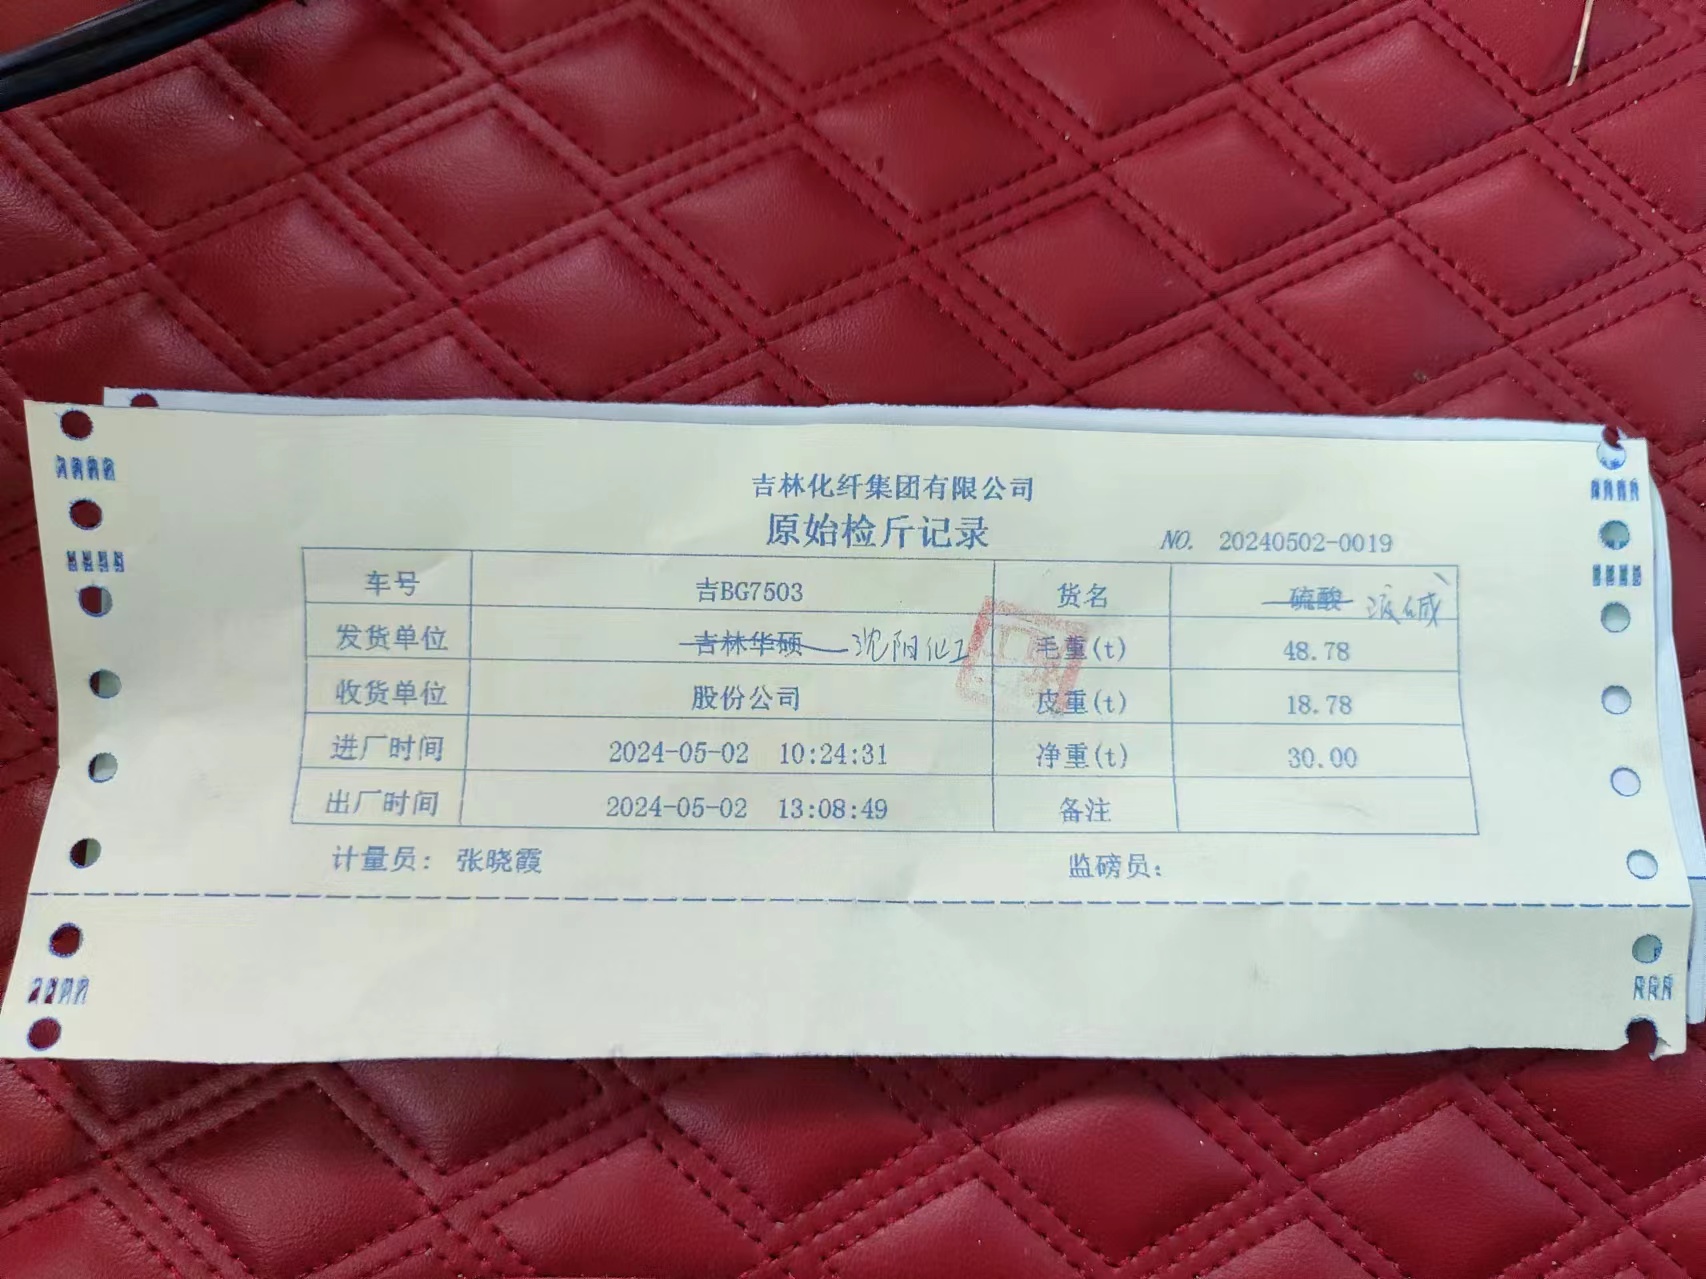 吉林化纤集团有限公司
原始检斤记录
NO. 20240502-0019
车号 吉BG7503 货名 硫酸 液碱
发货单位 吉林华硕 沈阳化工 毛重(t) 48.78
收货单位 股份公司 皮重(t) 18.78
进厂时间 2024-05-02 10:24:31 净重(t) 30.00
出厂时间 2024-05-02 13:08:49 备注
计量员: 张晓霞 监磅员: